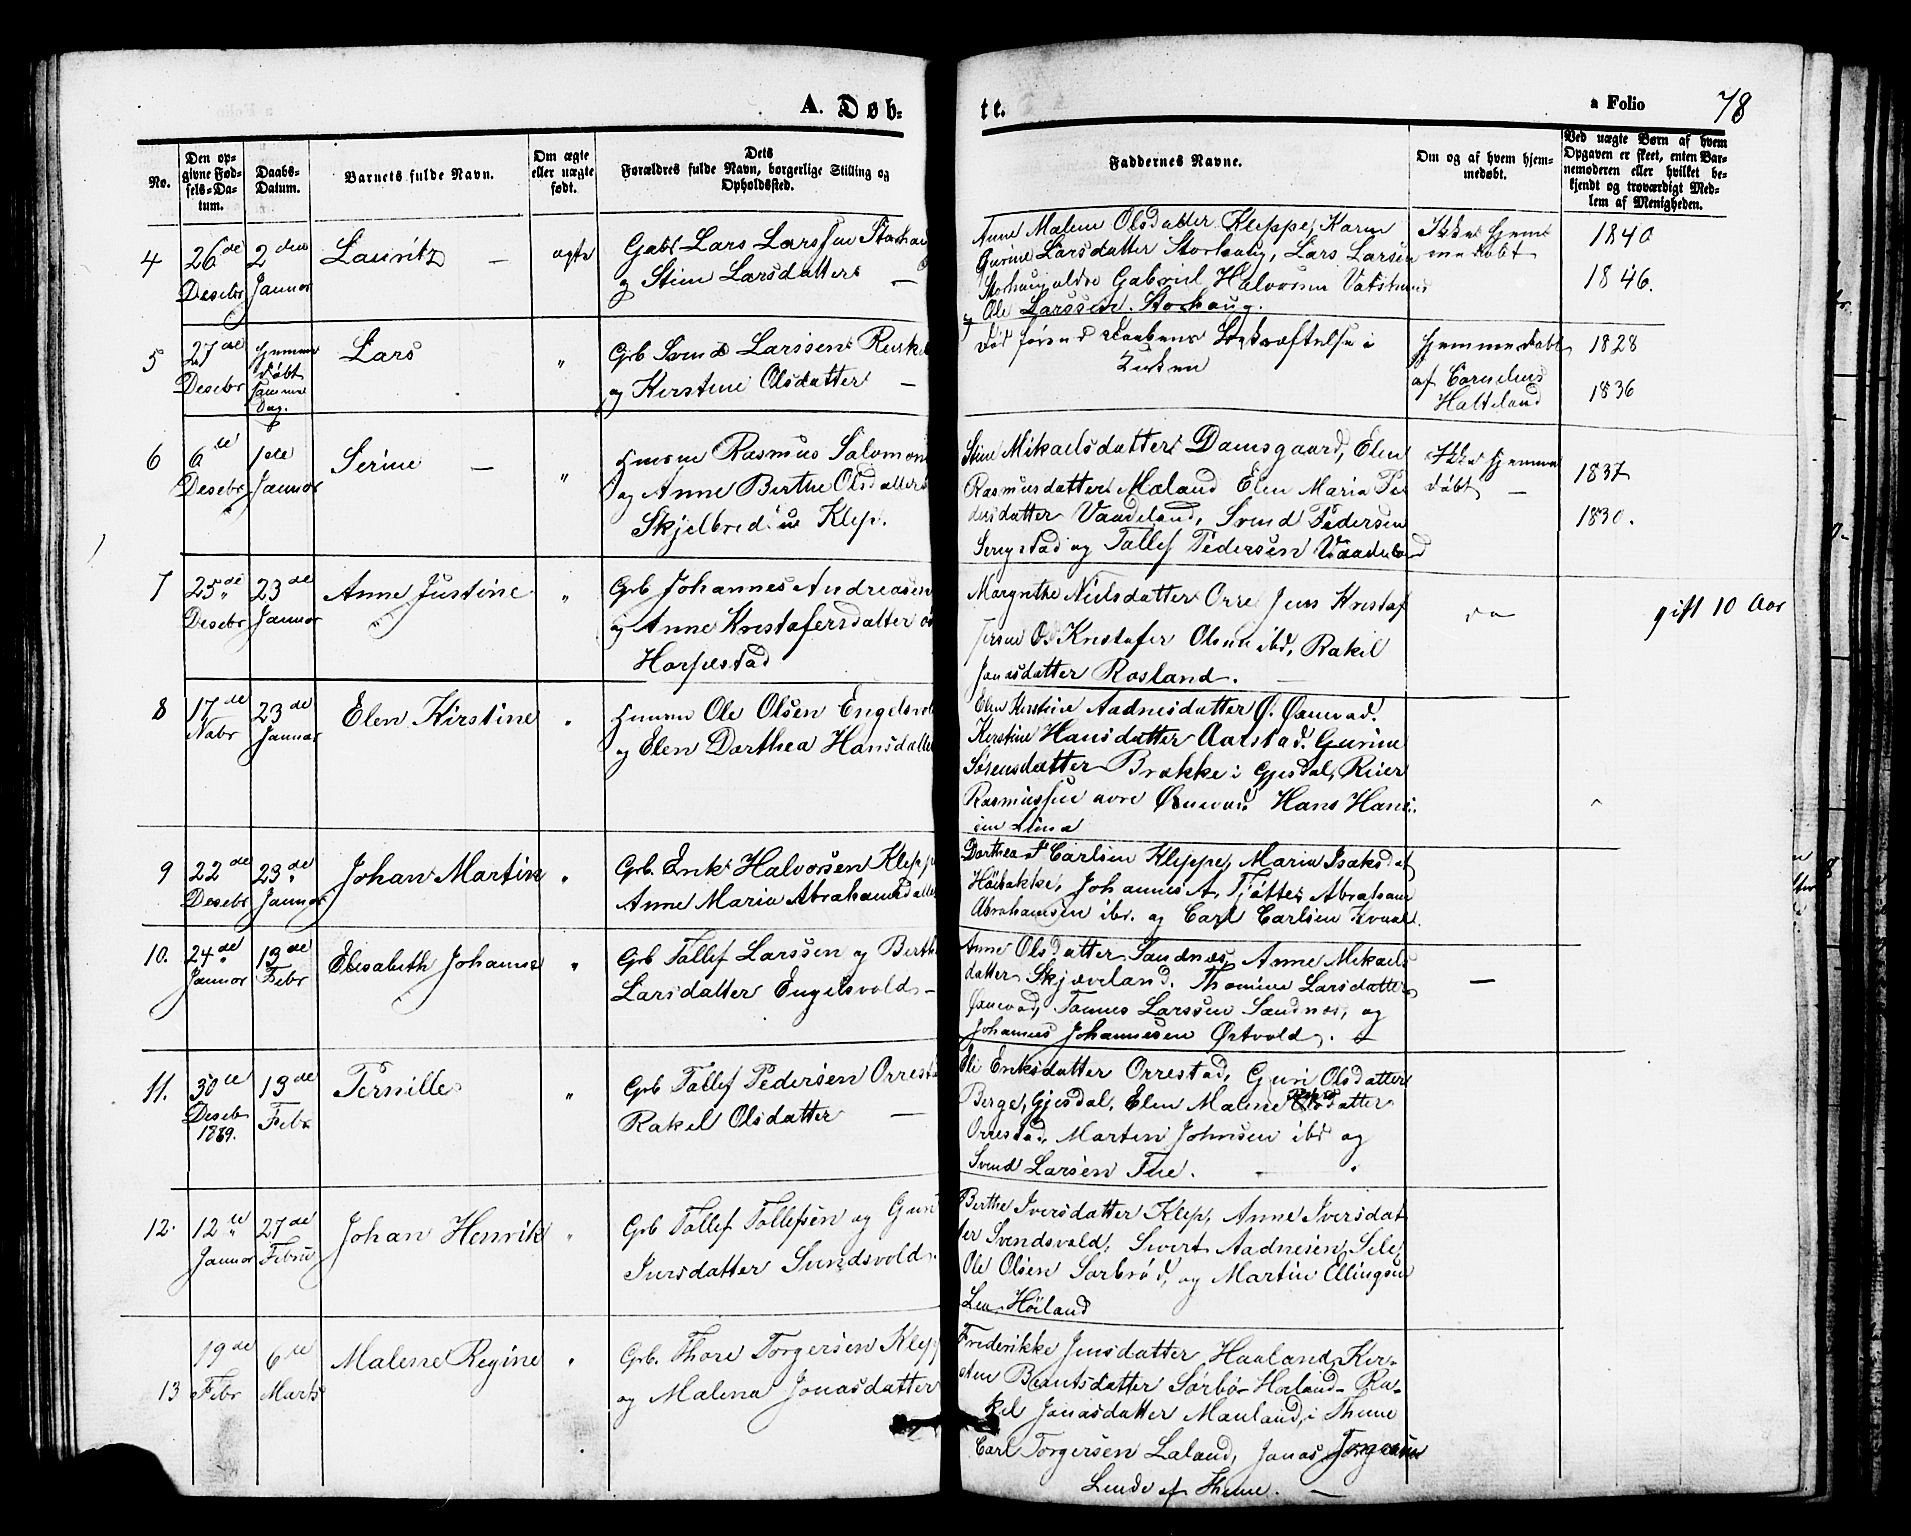 A. Døb-
te.
a Folio 78
No.
Den opgivne Fødsels-Datum.
Daabs-Datum.
Barnets fulde Navn.
Om ægte eller uægte født.
Dets Forældres fulde Navn, borgerlige Stilling og Opholdssted.
Faddernes Navne.
Om og af hvem hjemmedøbt.
Ved uægte Børn af hvem Opgaven er skeet, enten Barnemoderen eller hvilket bekjendt og troværdigt Medlem af Menigheden.
4
26de
Desebr
2den
Januar
Lauritz —
ægte
Gab Lars Larssen Storhau
og Stine Larsdatter —
Anne Malene Olsdatter Kleppe, Karen
Gurine Larsdatter Storhaug, Lars Larsen
Storhaug ældre Gabriel Halvorsen
og Ole Larssen Storhaug.
Ikke hjem-
medøbt
1840
1846.
5
27de
Desebr
hjemme
døbt
samme
Dag.
Lars
"
Grb Svend Larssen
og Kirstine Olsdatter —
død førend Daabens Bekræftelse i
Kirken
hjemmedøbt
af Cornelius
Halteland
1828
1836
6
6te
Desebr
1ste
Januar
Serine —
"
Rasmus Salomon
og Anne Berthe Olsdatter
Skjelbred i Klep.
Stine Mikaelsdatter Damsgaard, Elen
Rasmusdatter Mæland Elen Maria Pe
dersdatter Vaadeland, Svend Pedersen
Serigstad og Tallef Pedersen Vaadeland
Ikke hjemme
døbt —
1837
1830.
7
25de
Desebr
23de
Januar
Anne Justine
"
Grb Johannes Andreasen
og Anne Kristofersdatter
Horpestad
Margrethe Nielsdatter Orre Jens Kristof
fersen Kristofer Olsen ibd, Rakel
Jonasdatter Rosland. —
gift 10 Aar
8
17de
Nobr
23de
Januar
Elen Kirstine
"
Ole Olsen Engelsvol
og Elen Dorthea Hansdatte
Elen Kirstine Aadnesdatter Ø. Øxnevad.
Kirstine Hansdatter Aarstad. Gurine
Sørensdatter Brække i Gjesdal, Reier
Rasmussen Øxnevad Hans Hans
sen Lima
9
22de
Desebr
23de
Januar
Johan Martin
"
Grb. Erik Halvorsen Klepp
Anne Maria Abrahamsdatter
Dorthea Carlsen Kleppe, Maria Isaksdat
Høibakke, Johannes A. Tjøtte, Abraham
Abrahamsen ibr. og Carl Carlsen Kvaal.
10.
24de
Januar
13de
Febr
Elisabeth Johanne
"
Grb Tollef Larssen og Berthe
Larsdatter Engelsvold —
Anne Olsdatter Sandnes, Anne Mikaels
datter Skjæveland. Thomine Larsdatter
Øxnevad, Tønnes Larssen Sandnes, og
Johannes Johannesen Østvold.
—
11.
30te
Deseb
1869.
13de
Febr
Pernille
"
Grb Tollef Pedersen Orresta
Rakel Olsdatter —
Eli Eriksdatter Orrestad, Guri Olsdatter
Berge, Gjesdal, Elen Malene datter
Orrestad, Martin Johnsen ibd og
Svend Larsen Tue.
12.
12te
Januar
27de
Febru
Johan Henrik
"
Grb Tollef Tollefsen og Guri
Iversdatter Svendsvold.
Berthe Iversdatter Klep, Anne Iversdat
ter Svendsvold, Sivert Aadnesen, Sele,
Ole Olsen Sørbrød, og Martin Ellingsen
Høiland
13
19de
Febr
6te
Marts
Malene Regine
"
Grb. Thore Torgersen Klepp
og Malena Jonasdatter
Frederikke Jensdatter Haaland, Kir-
sten Berntsdatter Sørbø Høiland Ra-
kel Jonasdatter Mauland, i Thime
Carl Torgersen Laland, Jonas Jørgensen
Lende af Thime. —